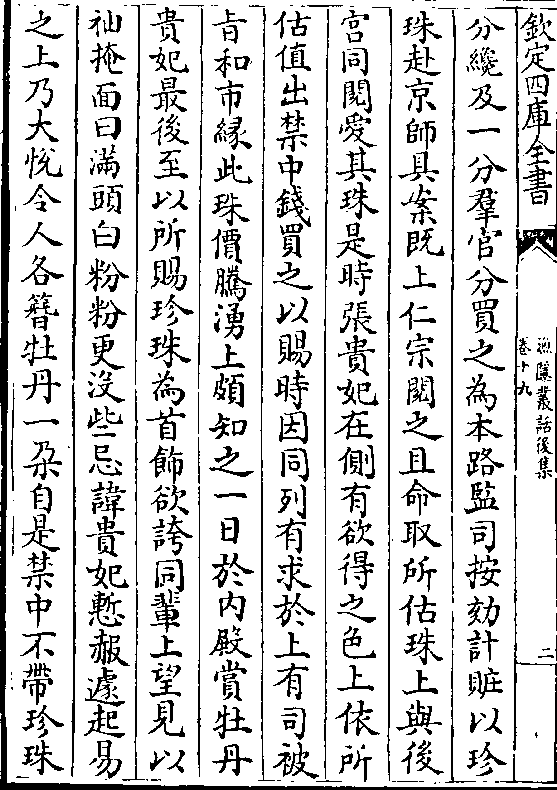 欽定四庫全書
漁隱叢話後集
卷十九
二
分纔及一分羣官分買之為本路監司按劾計贓以珍
珠赴京師具案既上仁宗閱之且命取所估珠上與後
宮同閱愛其珠是時張貴妃在側有欲得之色上依所
估值出禁中錢買之以賜時因同列有求於上有司被
㫖和市緣此珠價騰湧上頗知之一日於内殿賞牡丹
貴妃最後至以所賜珍珠為首飾欲誇同輩上望見以
袖掩面曰滿頭白粉粉更沒些忌諱貴妃慙赧遽起易
之上乃大悅令人各簪牡丹一朶自是禁中不帶珍珠